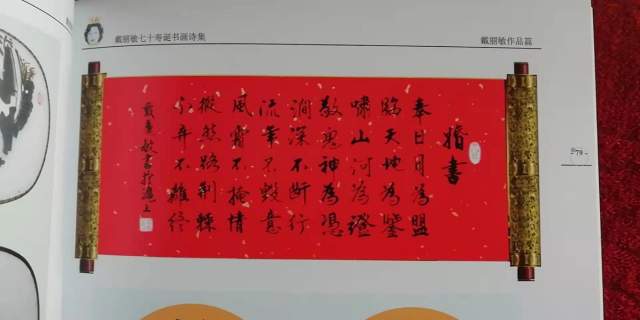 戴丽敏七十寿诞书画诗集
戴丽敏作品篇
婚書
奉日月為盟
臨天地為鑒
嘯山河為證
敬鬼神為憑
澗深不斷行
流年不毀意
風霜不掩情
縱然路荆棘
不弃不離終
戴麗敏書於滬上